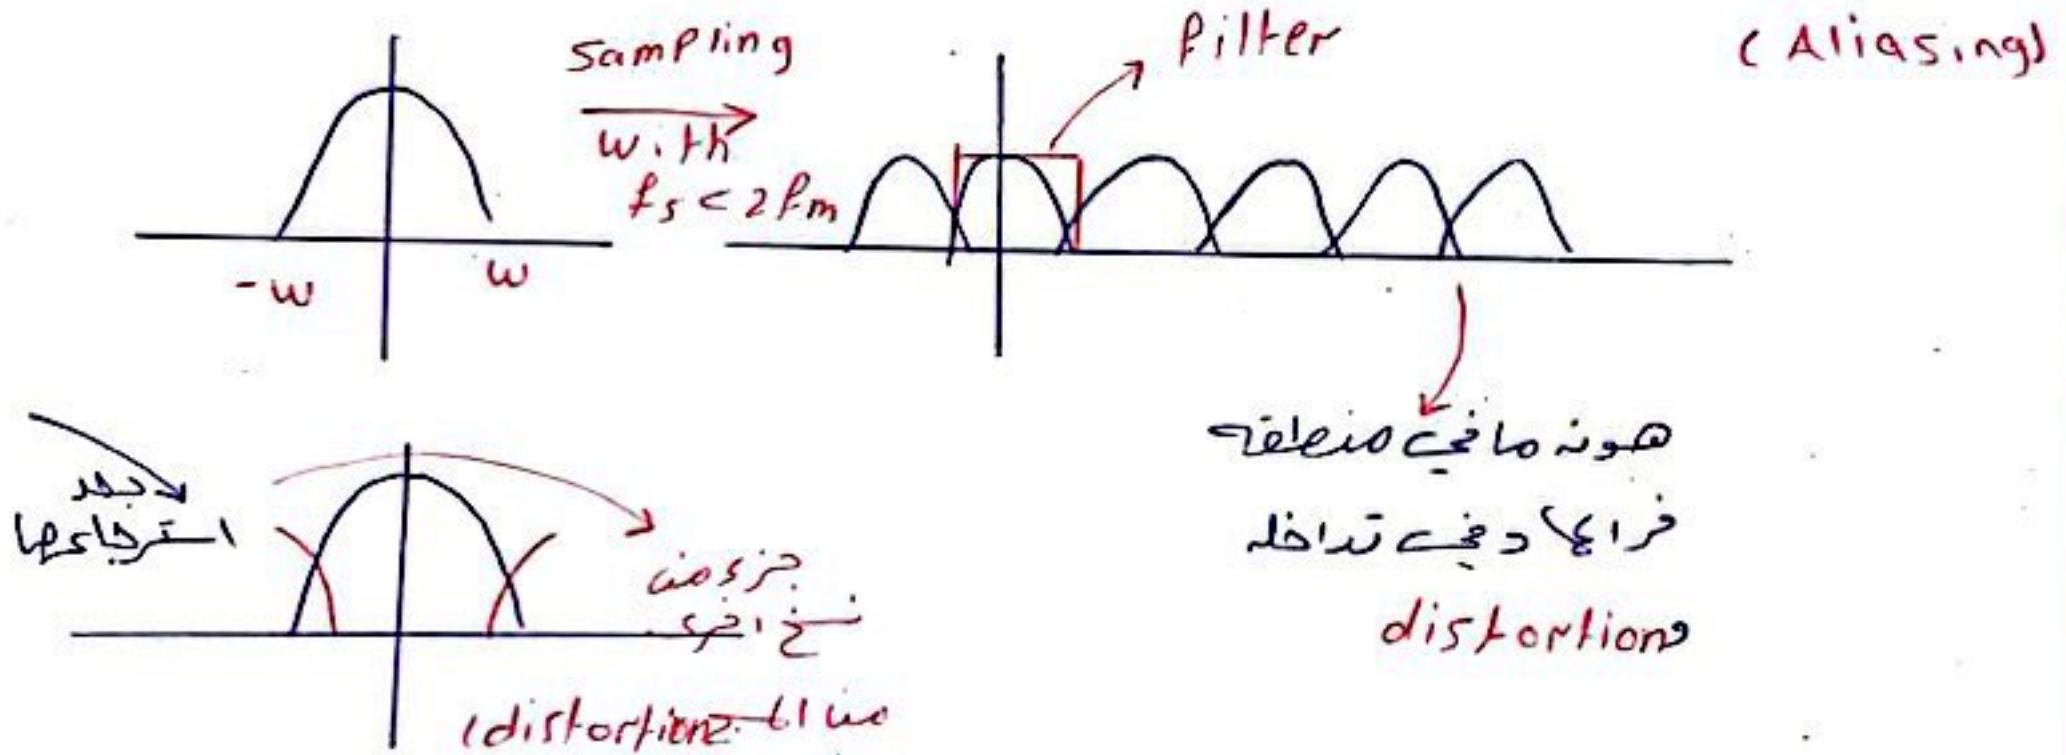 Sampling
with
fs < 2fm
filter
(Aliasing)
-w
w
هون ما في منطقة
فراغ و في تداخل
و distortion
بعد
استرجاعها
جزء من
نسخ اخرى
(distortion